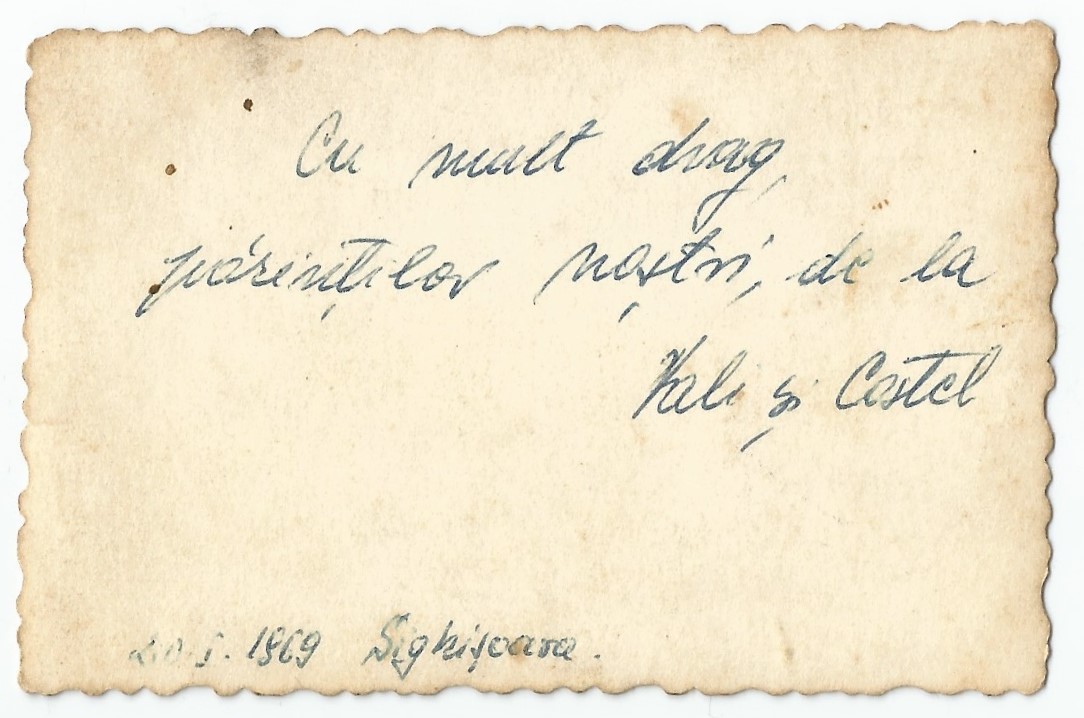 Cu mult drag,
părinților noștri, de la
Vali și Costel
20.I. 1969 Sighișoara.